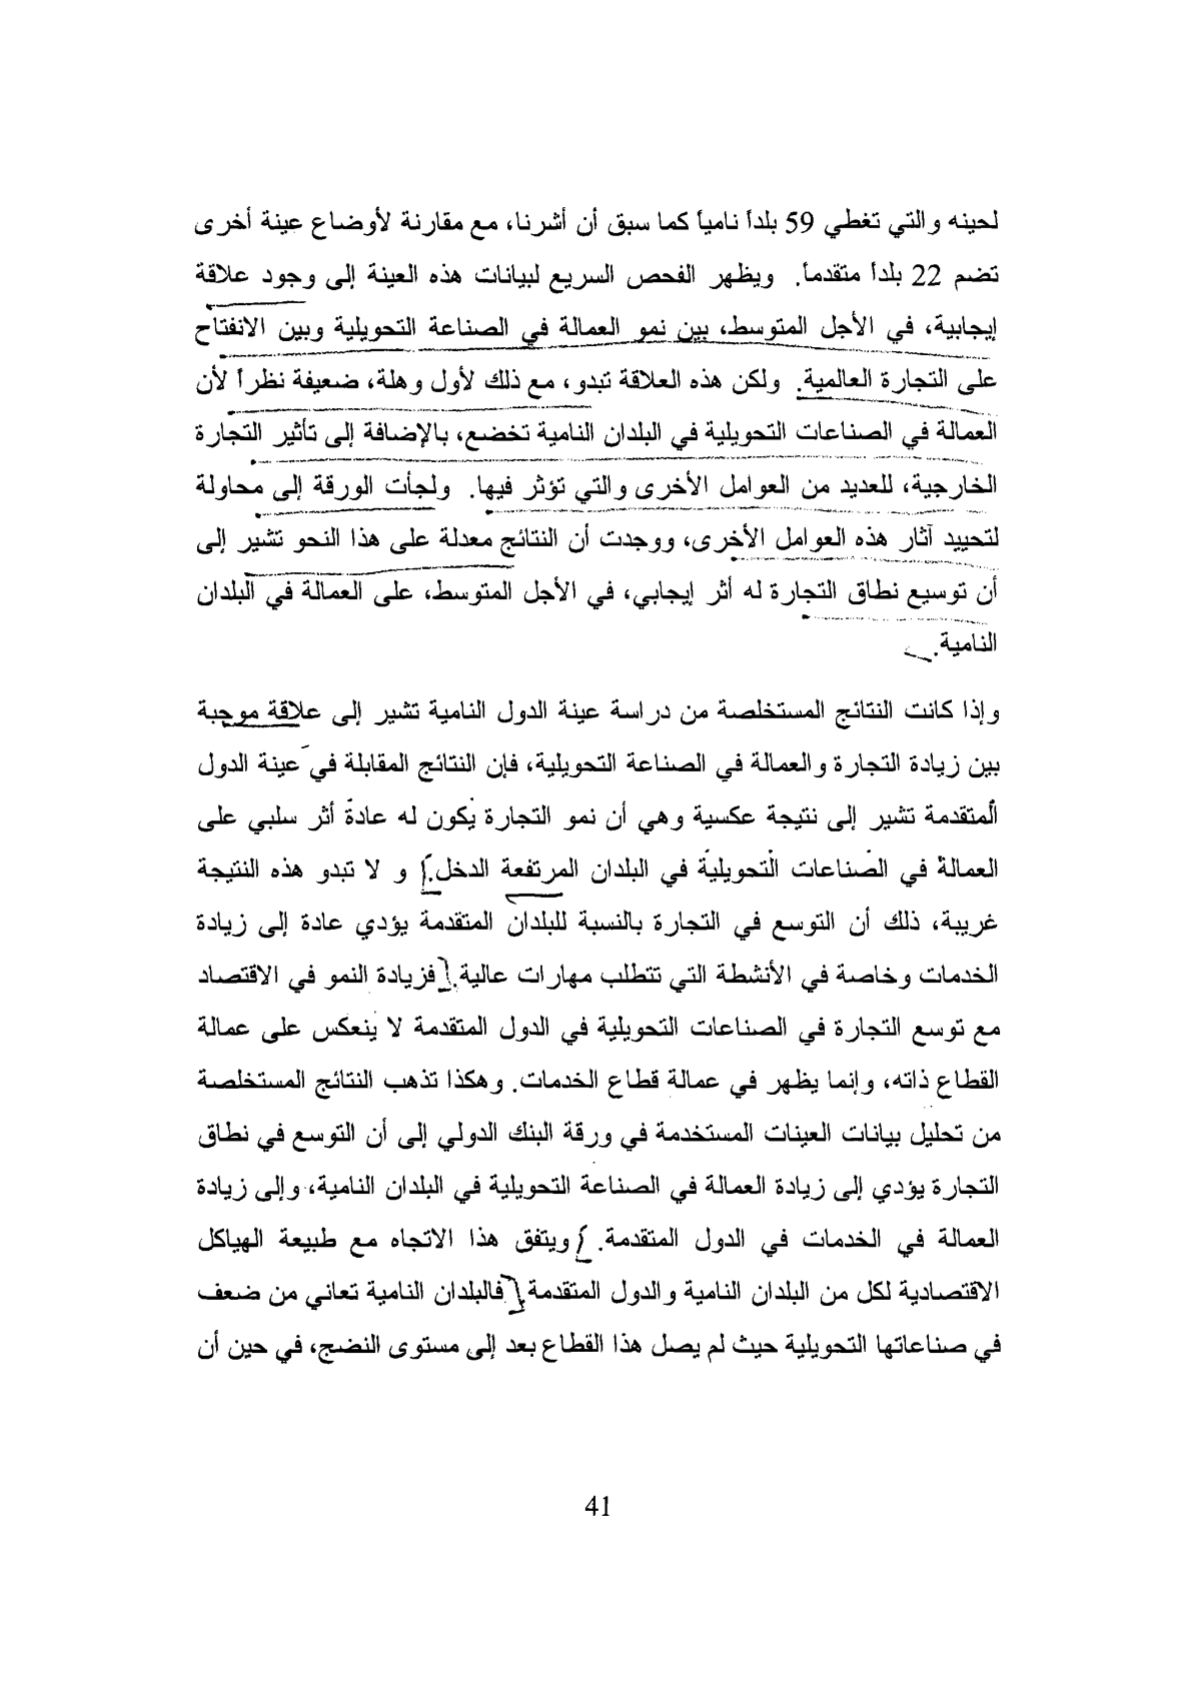 لحينه والتي تغطي 59 بلداً نامياً كما سبق أن أشرنا، مع مقارنة لأوضاع عينة أخرى
تضم 22 بلداً متقدماً. ويظهر الفحص السريع لبيانات هذه العينة إلى وجود علاقة
إيجابية، في الأجل المتوسط، بين نمو العمالة في الصناعة التحويلية وبين الانفتاح
على التجارة العالمية. ولكن هذه العلاقة تبدو، مع ذلك لأول وهلة، ضعيفة نظراً لأن
العمالة في الصناعات التحويلية في البلدان النامية تخضع، بالإضافة إلى تأثير التجارة
الخارجية، للعديد من العوامل الأخرى والتي تؤثر فيها. ولجأت الورقة إلى محاولة
لتحييد آثار هذه العوامل الأخرى، ووجدت أن النتائج معدلة على هذا النحو تشير إلى
أن توسيع نطاق التجارة له أثر إيجابي، في الأجل المتوسط، على العمالة في البلدان
النامية.
وإذا كانت النتائج المستخلصة من دراسة عينة الدول النامية تشير إلى علاقة موجبة
بين زيادة التجارة والعمالة في الصناعة التحويلية، فإن النتائج المقابلة في عينة الدول
المتقدمة تشير إلى نتيجة عكسية وهي أن نمو التجارة يكون له عادةً أثر سلبي على
العمالة في الصناعات التحويلية في البلدان المرتفعة الدخل. و لا تبدو هذه النتيجة
غريبة، ذلك أن التوسع في التجارة بالنسبة للبلدان المتقدمة يؤدي عادة إلى زيادة
الخدمات وخاصة في الأنشطة التي تتطلب مهارات عالية. فزيادة النمو في الاقتصاد
مع توسع التجارة في الصناعات التحويلية في الدول المتقدمة لا ينعكس على عمالة
القطاع ذاته، وإنما يظهر في عمالة قطاع الخدمات. وهكذا تذهب النتائج المستخلصة
من تحليل بيانات العينات المستخدمة في ورقة البنك الدولي إلى أن التوسع في نطاق
التجارة يؤدي إلى زيادة العمالة في الصناعة التحويلية في البلدان النامية، وإلى زيادة
العمالة في الخدمات في الدول المتقدمة. ويتفق هذا الاتجاه مع طبيعة الهياكل
الاقتصادية لكل من البلدان النامية والدول المتقدمة. فالبلدان النامية تعاني من ضعف
في صناعاتها التحويلية حيث لم يصل هذا القطاع بعد إلى مستوى النضج، في حين أن
41